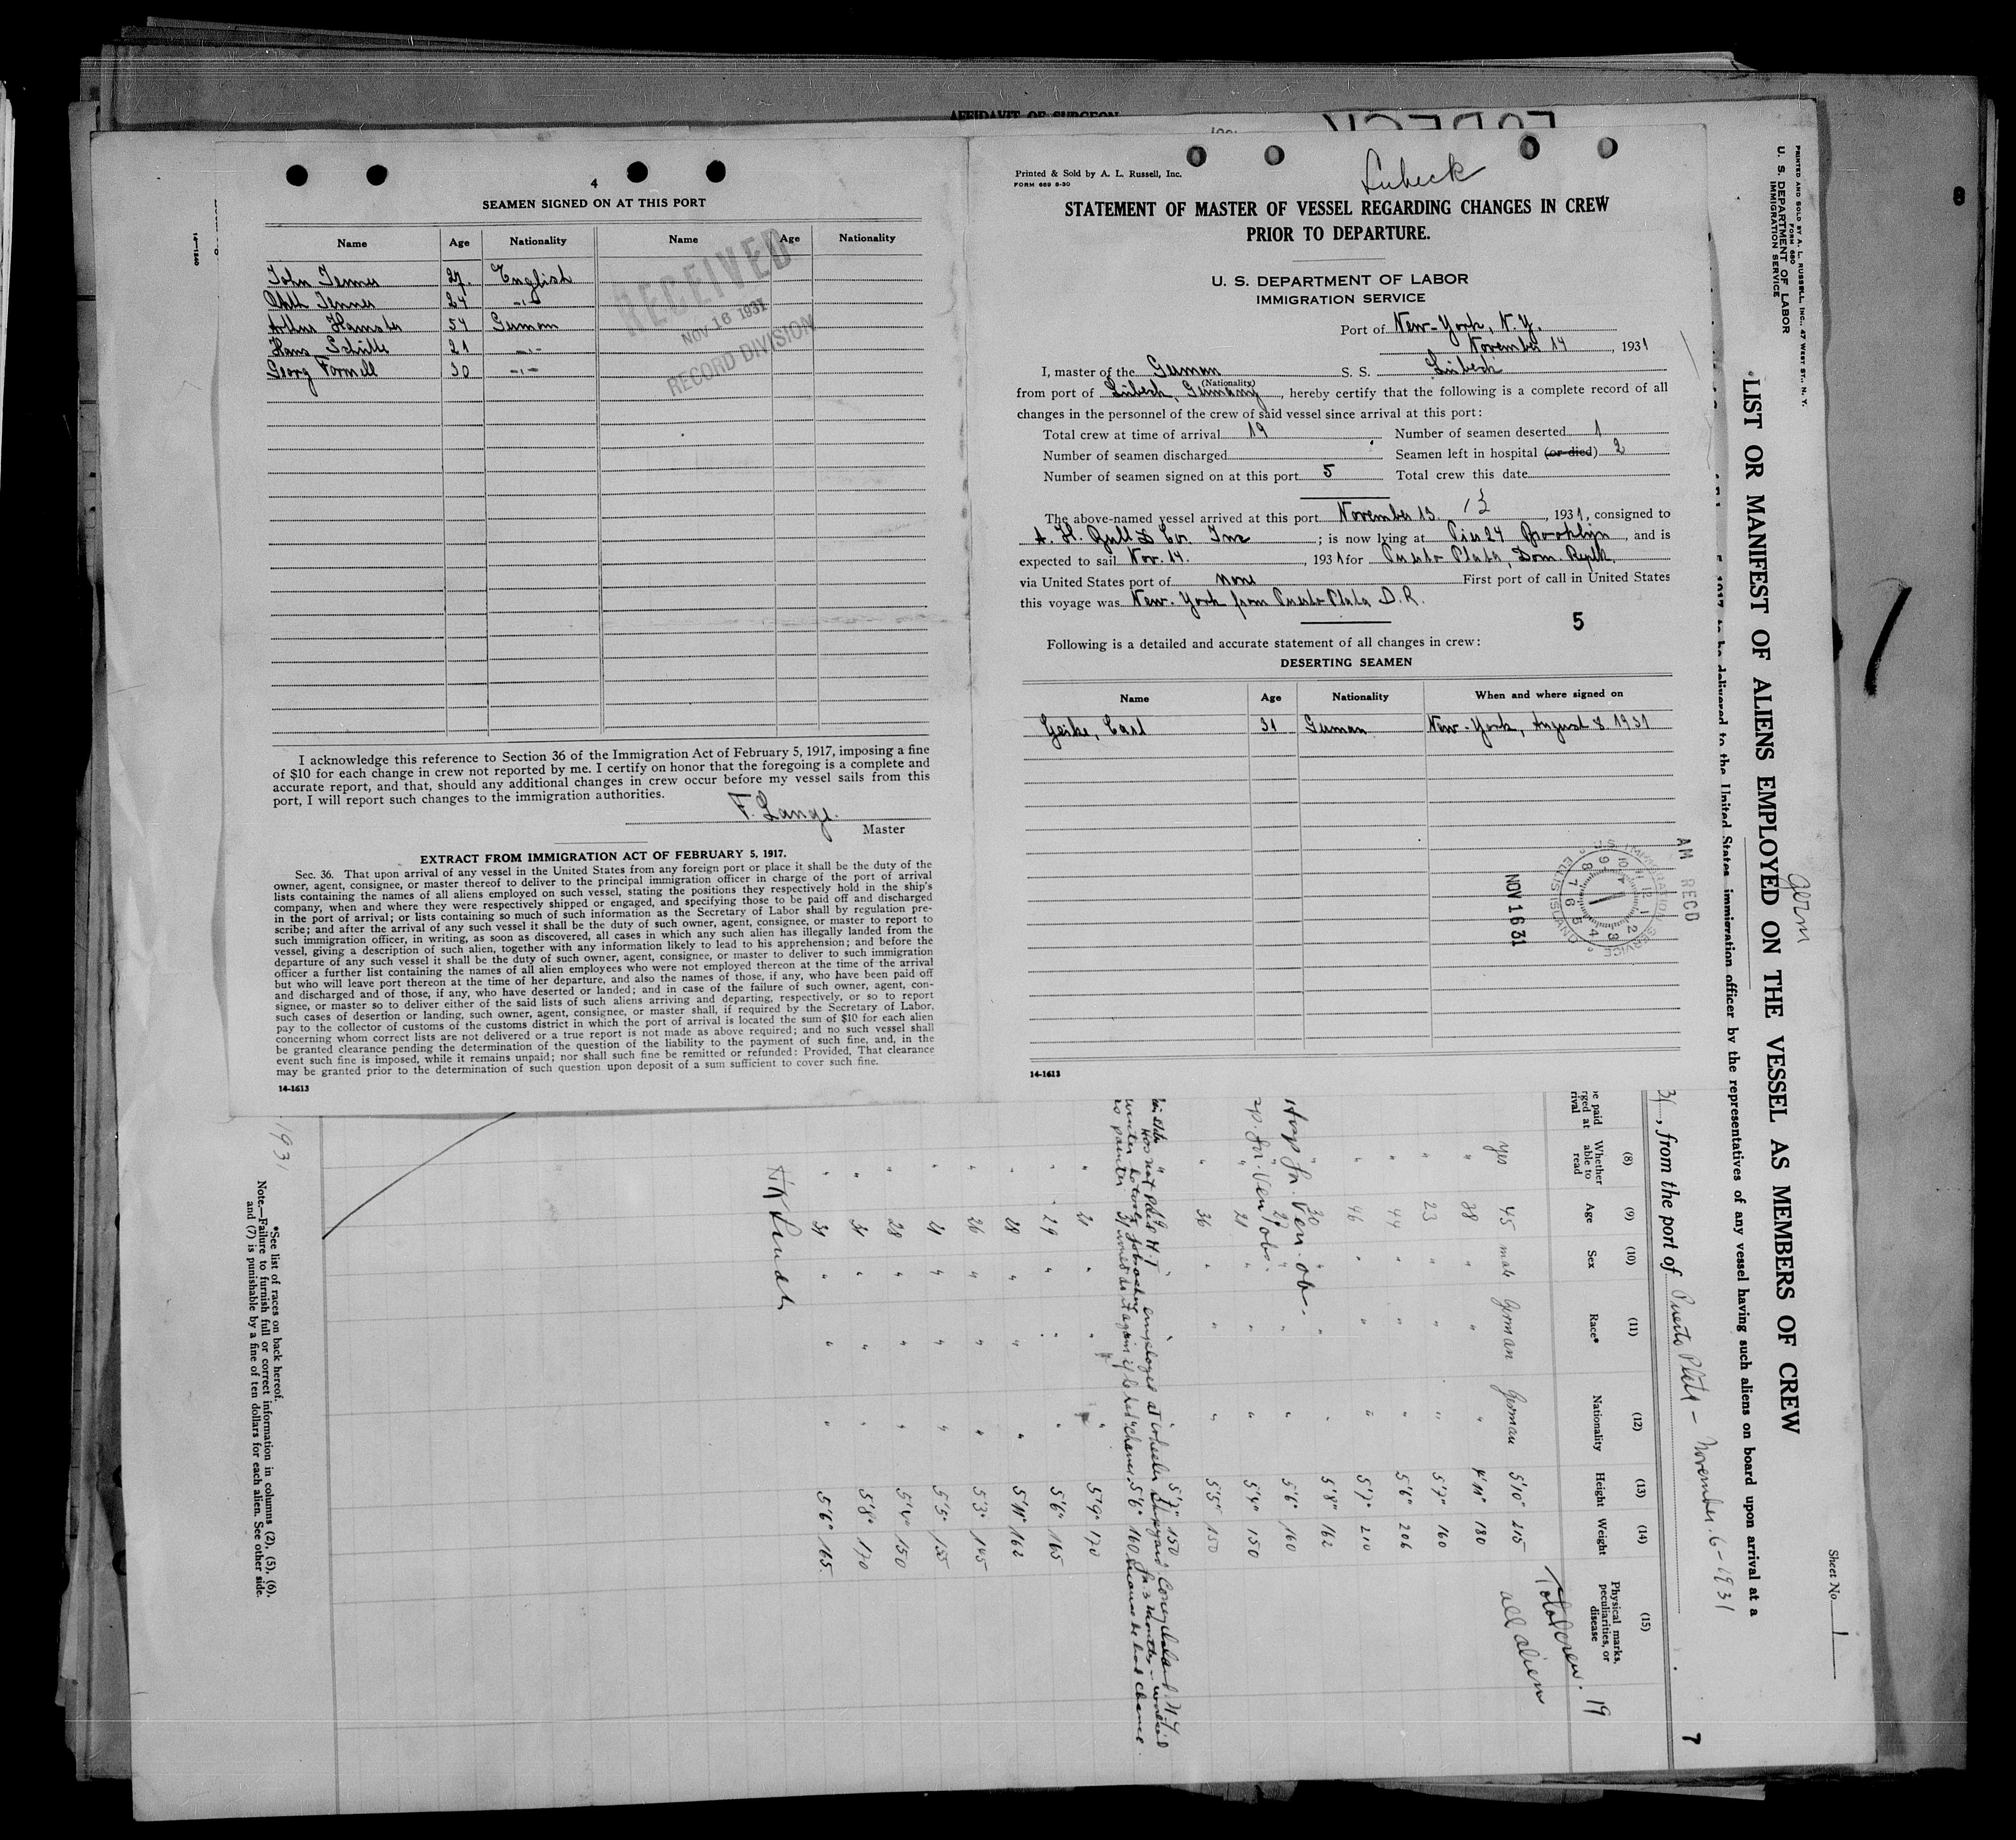 AFFIDAVIT OF SURGEON
4
SEAMEN SIGNED ON AT THIS PORT
Name Age Nationality Name Age Nationality
John Jennes 27. English
24 -"-
Arthur 54 German
Hans Schütte 21 -"-
Georg 30 -"-
RECEIVED
NOV 16 1931
RECORD DIVISION
I acknowledge this reference to Section 36 of the Immigration Act of February 5, 1917, imposing a fine
of $10 for each change in crew not reported by me. I certify on honor that the foregoing is a complete and
accurate report, and that, should any additional changes in crew occur before my vessel sails from this
port, I will report such changes to the immigration authorities.
F. Lange.
Master
EXTRACT FROM IMMIGRATION ACT OF FEBRUARY 5, 1917.
Sec. 36. That upon arrival of any vessel in the United States from any foreign port or place it shall be the duty of the
owner, agent, consignee, or master thereof to deliver to the principal immigration officer in charge of the port of arrival
lists containing the names of all aliens employed on such vessel, stating the positions they respectively hold in the ship's
company, when and where they were respectively shipped or engaged, and specifying those to be paid off and discharged
in the port of arrival; or lists containing so much of such information as the Secretary of Labor shall by regulation pre-
scribe; and after the arrival of any such vessel it shall be the duty of such owner, agent, consignee, or master to report to
such immigration officer, in writing, as soon as discovered, all cases in which any such alien has illegally landed from the
vessel, giving a description of such alien, together with any information likely to lead to his apprehension; and before the
departure of any such vessel it shall be the duty of such owner, agent, consignee, or master to deliver to such immigration
officer a further list containing the names of all alien employees who were not employed thereon at the time of the arrival
but who will leave port thereon at the time of her departure, and also the names of those, if any, who have been paid off
and discharged and of those, if any, who have deserted or landed; and in case of the failure of such owner, agent, con-
signee, or master so to deliver either of the said lists of such aliens arriving and departing, respectively, or so to report
such cases of desertion or landing, such owner, agent, consignee, or master shall, if required by the Secretary of Labor,
pay to the collector of customs of the customs district in which the port of arrival is located the sum of $10 for each alien
concerning whom correct lists are not delivered or a true report is not made as above required; and no such vessel shall
be granted clearance pending the determination of the question of the liability to the payment of such fine, and, in the
event such fine is imposed, while it remains unpaid; nor shall such fine be remitted or refunded: Provided, That clearance
may be granted prior to the determination of such question upon deposit of a sum sufficient to cover such fine.
14-1613
14-1240
Printed & Sold by A. L. Russell, Inc.
FORM 689 8-30
Lubeck
STATEMENT OF MASTER OF VESSEL REGARDING CHANGES IN CREW
PRIOR TO DEPARTURE.
U. S. DEPARTMENT OF LABOR
IMMIGRATION SERVICE
Port of New-York, N.Y.
November 14, 1931
I, master of the German S. S. Lübeck
(Nationality)
from port of Lübeck, Germany, hereby certify that the following is a complete record of all
changes in the personnel of the crew of said vessel since arrival at this port:
Total crew at time of arrival 19 Number of seamen deserted 1
Number of seamen discharged Seamen left in hospital (or died) 2
Number of seamen signed on at this port 5 Total crew this date
The above-named vessel arrived at this port November 13. 13, 1931, consigned to
A. H. Bull & Co. Inc; is now lying at Pier 24 Brooklyn, and is
expected to sail Nov. 14., 1931 for Puerto Plata, Dom. Repbl.
via United States port of none First port of call in United States
this voyage was New-York from Puerto Plata D.R.
5
Following is a detailed and accurate statement of all changes in crew:
DESERTING SEAMEN
Name Age Nationality When and where signed on
Geike, Carl 31 German New-York, August 8. 1931
U.S. IMMIGRATION SERVICE
ELLIS ISLAND
AM RECD
NOV 16 31
14-1613
PRINTED AND SOLD BY A. L. RUSSELL, INC., 47 WEST ST., N. Y.
FORM 680
U. S. DEPARTMENT OF LABOR
IMMIGRATION SERVICE
Sheet No. 1
germ
LIST OR MANIFEST OF ALIENS EMPLOYED ON THE VESSEL AS MEMBERS OF CREW
1917, to be delivered to the United States immigration officer by the representatives of any vessel having such aliens on board upon arrival at a
31, from the port of Puerto Plata - November. 6-1931
7
(8) (9) (10) (11) (12) (13) (14) (15)
Whether able to read Age Sex Race* Nationality Height Weight Physical marks, peculiarities, or disease
Total crew. 19
all alien
yes 45 male German German 5'10" 215
" 38 " " " 4'11" 180
" 23 " " " 5'7" 160
" 44 " " " 5'6" 206
" 46 " " " 5'7" 210
" 30 " " " 5'8" 162
Hosp for Ven. obs.
" 29 " " " 5'6" 160
" 21 " " " 5'4" 150
" 36 " " " 5'5" 150
5'7" 150
31 5'6" 160
" 21 " " " 5'9" 170
" 29 " " " 5'6" 165
" 28 " " " 5'11" 162
" 26 " " " 5'3" 145
" 21 " " " 5'5" 155
" 28 " " " 5'4" 150
" 31 " " " 5'8" 170
" 31 " " " 5'6" 165.
1931
*See list of races on back hereof.
Note.—Failure to furnish full or correct information in columns (2), (5), (6),
and (7) is punishable by a fine of ten dollars for each alien. See other side.